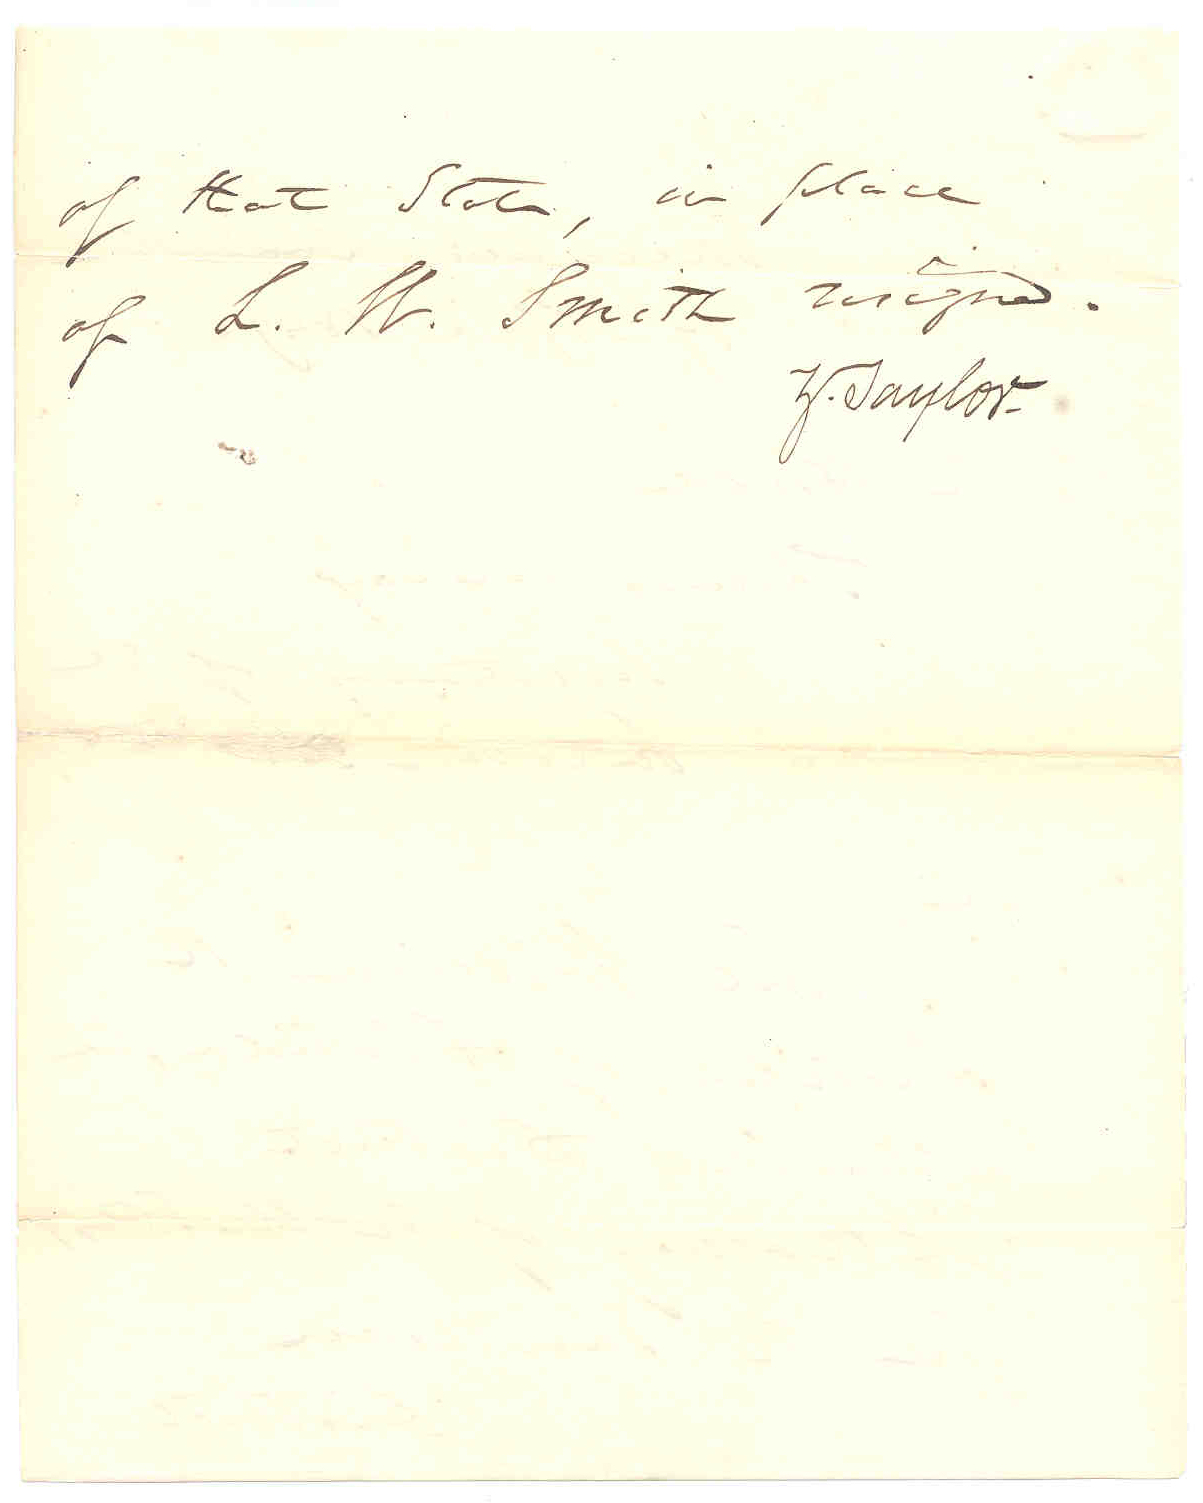 of that State, in place
of L. W. Smith resigned.
Z. Taylor.